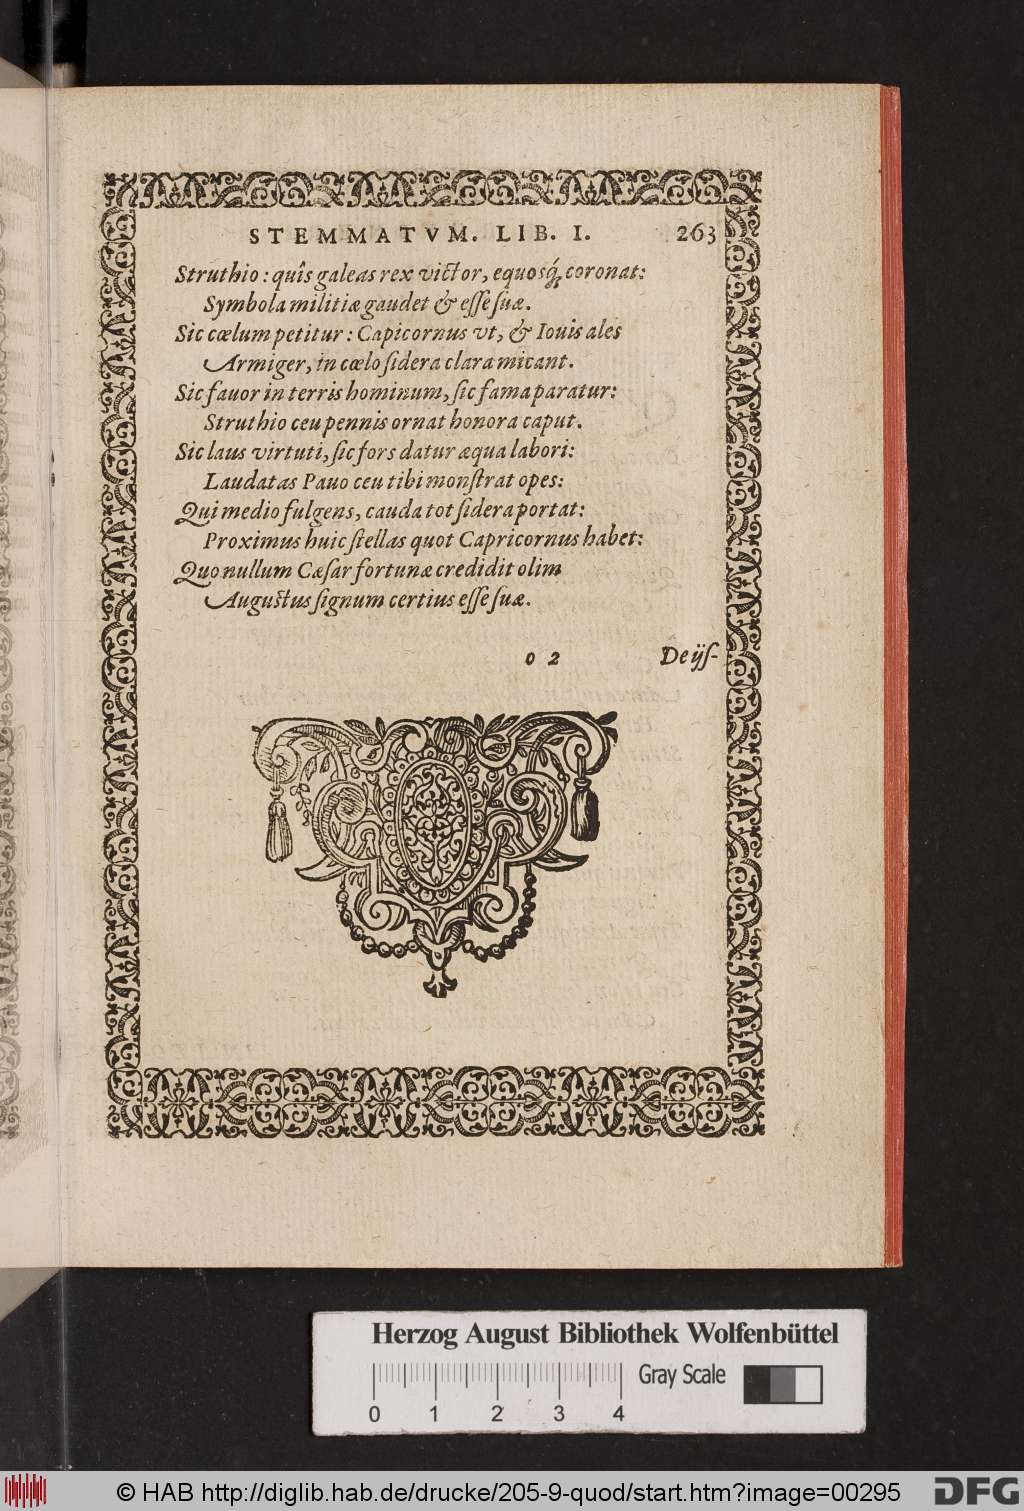 STEMMATVM. LIB. I. 263
Struthio: quîs galeas rex victor, equosq́; coronat:
Symbola militiæ gaudet & esse suæ.
Sic cœlum petitur: Capicornus vt, & Iouis ales
Armiger, in cœlo sidera clara micant.
Sic fauor in terris hominum, sic fama paratur:
Struthio ceu pennis ornat honora caput.
Sic laus virtuti, sic fors datur æqua labori:
Laudatas Pauo ceu tibi monstrat opes:
Qui medio fulgens, cauda tot sidera portat:
Proximus huic stellas quot Capricornus habet:
Quo nullum Cæsar fortunæ credidit olim
Augustus signum certius esse suæ.
o 2 De ijs-
Herzog August Bibliothek Wolfenbüttel
Gray Scale
0 1 2 3 4
© HAB http://diglib.hab.de/drucke/205-9-quod/start.htm?image=00295
DFG